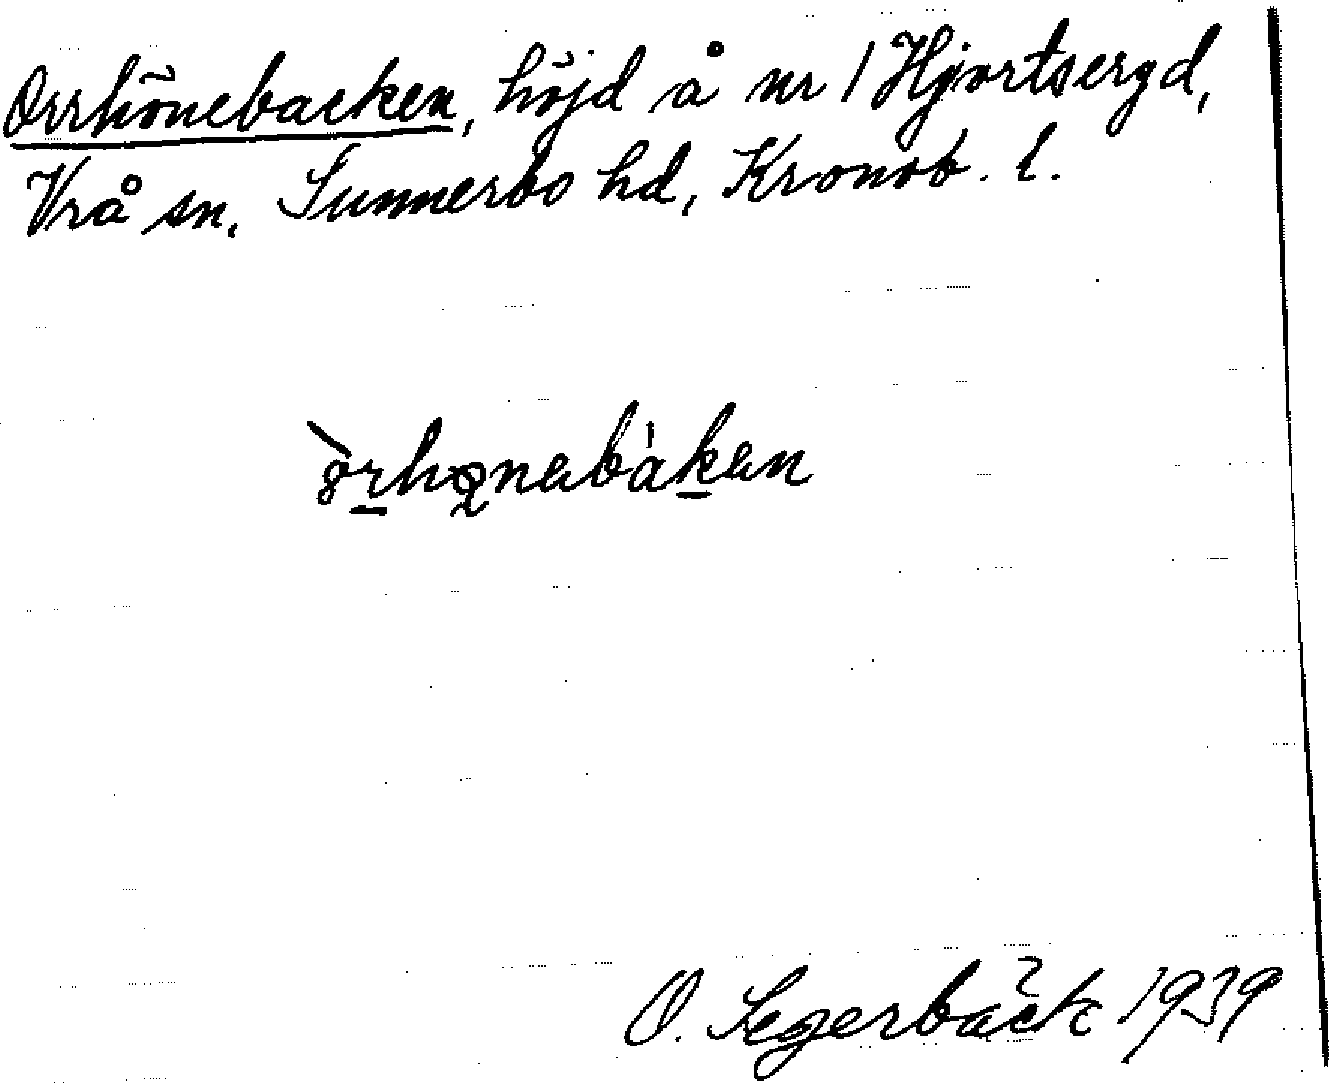 Orrhönebacken, höjd å nr 1 Hjortseryd,
Vrå sn. Sunnerbo hd, Kronob. l.
O. Segerbäck 1939